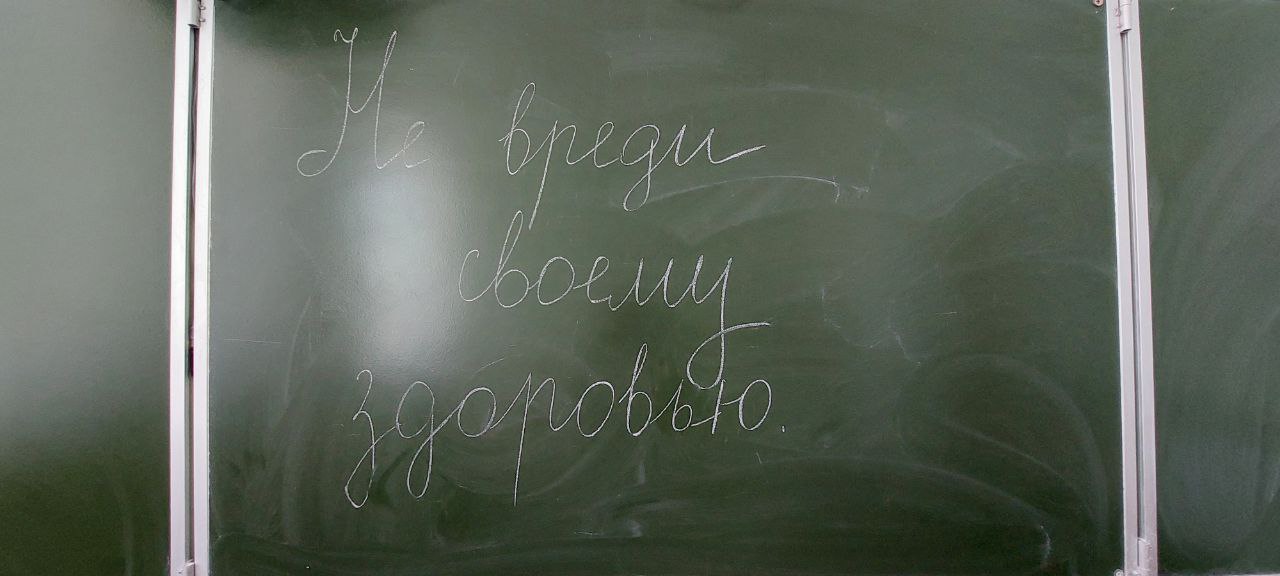 Не вреди
своему
здоровью.